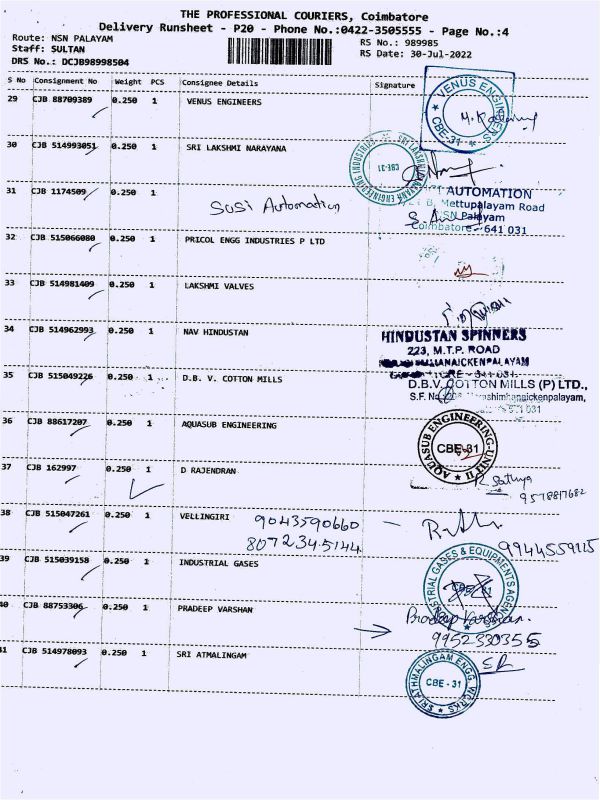 THE PROFESSIONAL COURIERS, Coimbatore
Delivery Runsheet - P20 - Phone No.:0422-3505555 - Page No.:4
Route: NSN PALAYAM
RS No.: 989985
Staff: SULTAN
RS Date: 30-Jul-2022
DRS No.: DCJB98998504
S No Consignment No Weight PCS Consignee Details Signature
29 CJB 88709389 0.250 1 VENUS ENGINEERS
VENUS ENGINEERS
CBE-31
30 CJB 514993051 0.250 1 SRI LAKSHMI NARAYANA
CBE-31
31 CJB 1174509 0.250 1
Susi Automation
AUTOMATION
B, Mettupalayam Road
NSN Palayam
Coimbatore - 641 031
32 CJB 515066080 0.250 1 PRICOL ENGG INDUSTRIES P LTD
33 CJB 514981409 0.250 1 LAKSHMI VALVES
34 CJB 514962993 0.250 1 NAV HINDUSTAN
HINDUSTAN SPINNERS
223, M.T.P. ROAD
35 CJB 515049226 0.250 1 D.B.V. COTTON MILLS
D.B.V. COTTON MILLS (P) LTD.,
S.F. No
36 CJB 88617207 0.250 1 AQUASUB ENGINEERING
AQUASUB ENGINEERING-UNIT II
CBE-31
37 CJB 162997 0.250 1 D RAJENDRAN
R Sathya
9578817682
38 CJB 515047261 0.250 1 VELLINGIRI
9043590660
8072345144
9944559115
39 CJB 515039158 0.250 1 INDUSTRIAL GASES
INDUSTRIAL GASES & EQUIPMENTS AGENCIES
40 CJB 88753306 0.250 1 PRADEEP VARSHAN
Pradeep Varshan
9952330355
41 CJB 514978093 0.250 1 SRI ATMALINGAM
SRI ATHMALINGAM ENGG. WORKS
CBE - 31